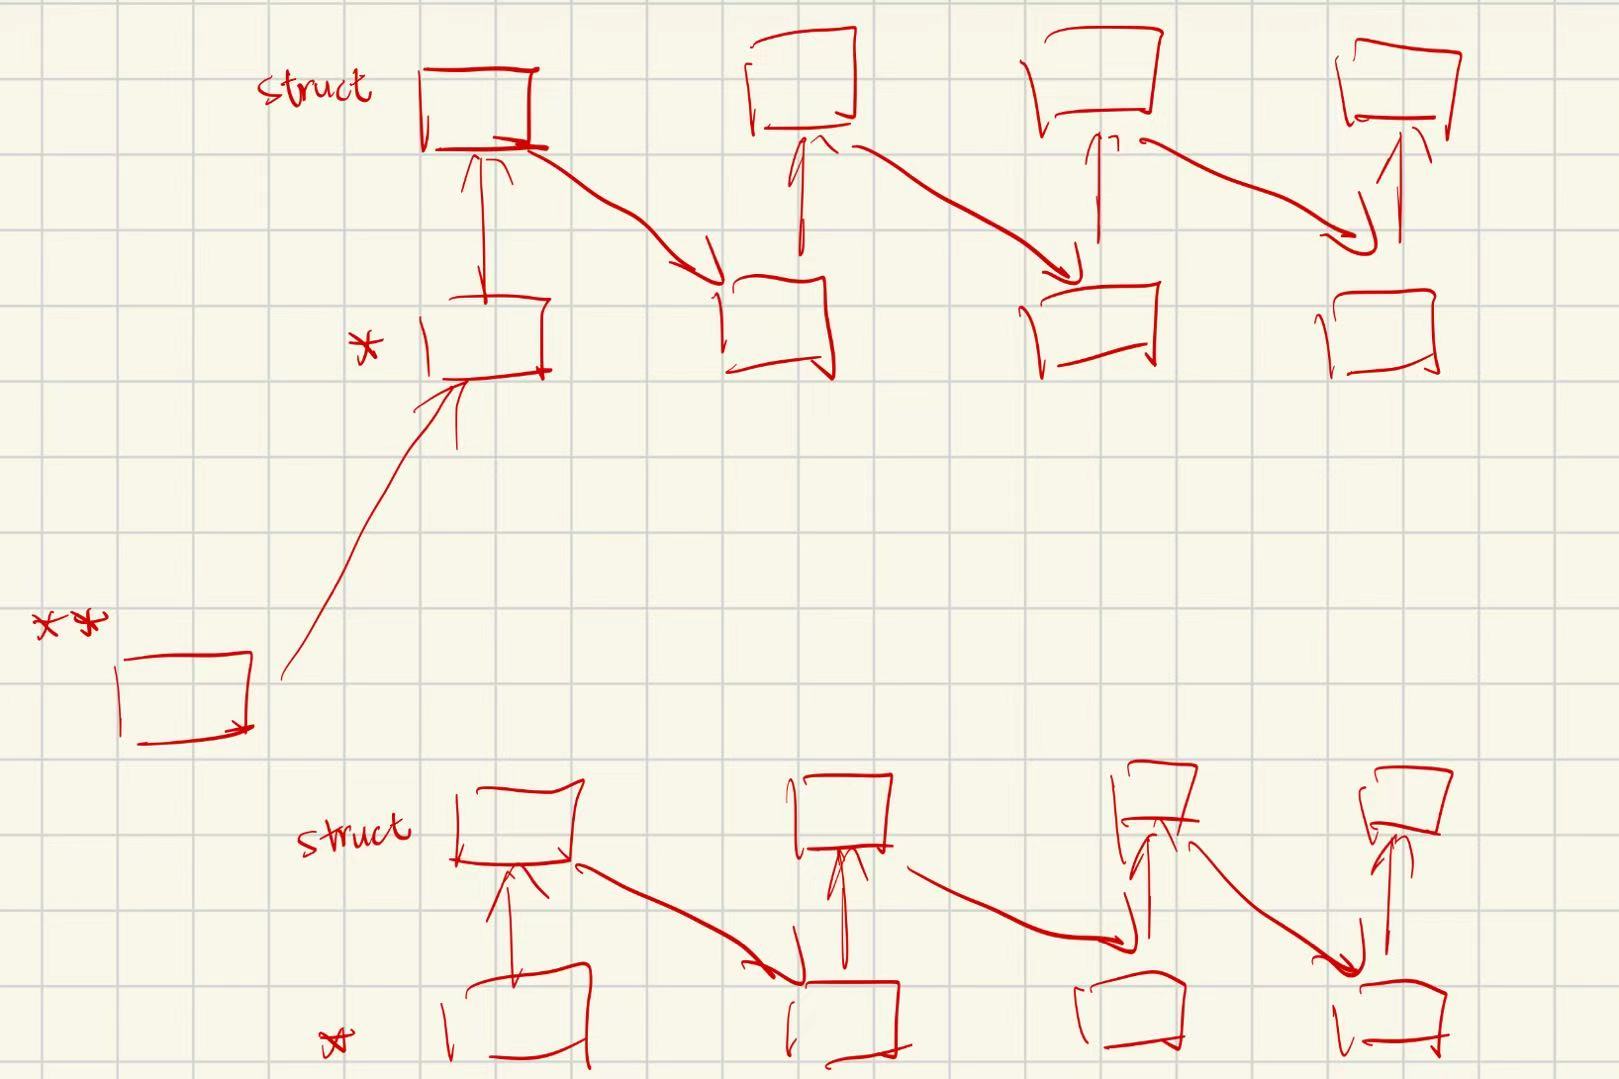 struct
*
**
struct
*